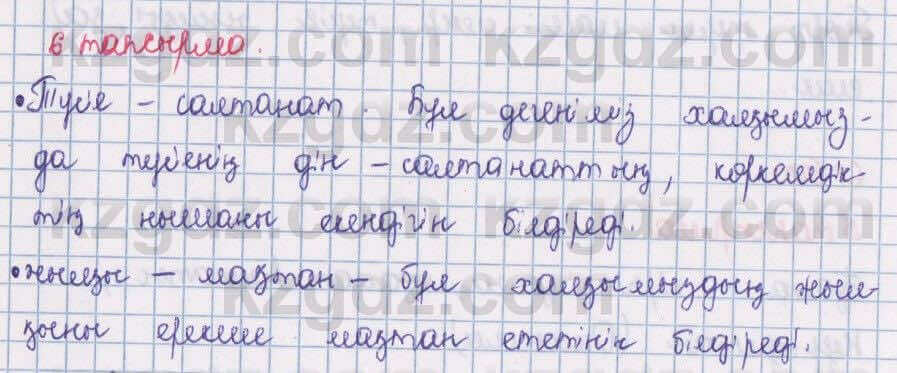 6 тапсырма.
• Түйе – салтанат. Бұл дегеніміз халқымыз-
да түйенің дін – салтанаттың, көркемдік
тің нышаны екендігін білдіреді.
• Жылқы – мақтан – бұл халқымыздың жыл-
қыны ерекше мақтан ететінін білдіреді.
kzgdz.com